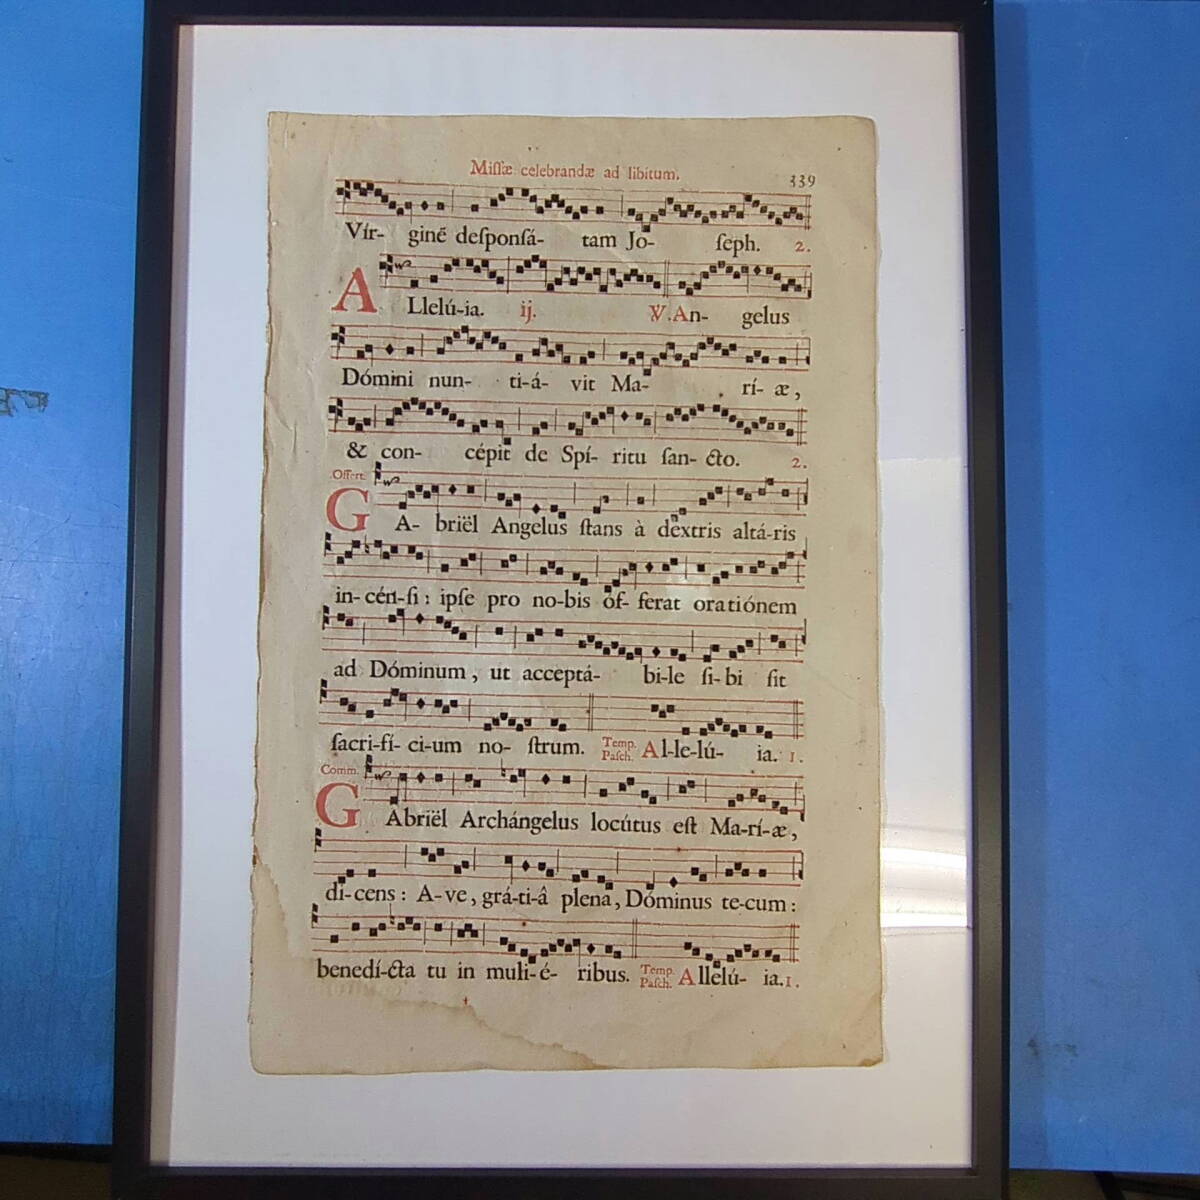 Miſſæ celebrandæ ad libitum. 339
Vír- ginē deſponſá- tam Jo- ſeph. 2.
ALlelú-ia. ij. ℣. An- gelus
Dómini nun- ti-á- vit Ma- rí- æ,
& con- cépit de Spí- ritu ſan- cto. 2.
Offert.
GA- briël Angelus ſtans à dextris altá-ris
in-cén-ſi: ipſe pro no-bis of- ferat orationem
ad Dóminum, ut acceptá- bi-le ſi-bi ſit
ſacri-fí- ci-um no- ſtrum. Temp. Paſch. Al-le-lú- ia. 1.
Comm.
GAbriël Archángelus locútus eſt Ma-rí-æ,
di-cens: A-ve, grá-ti-â plena, Dóminus te-cum:
benedí-cta tu in muli-é- ribus. Temp. Paſch. Allelú- ia. 1.